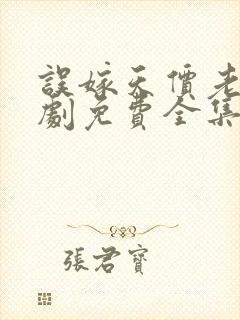 誤嫁天價老
劇免費全集
張君寶